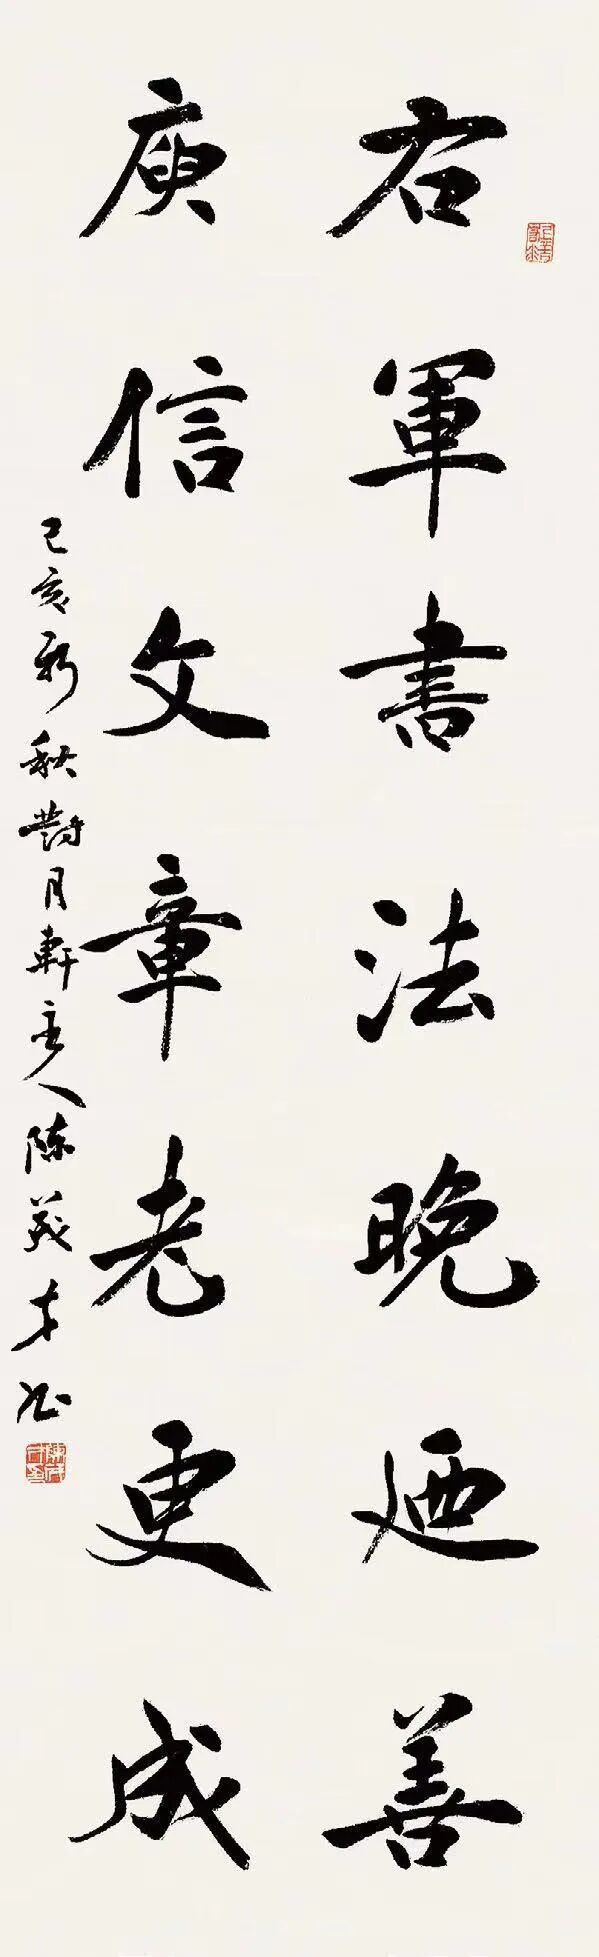 右軍書法晚迺善
庾信文章老更成
己亥新秋對月軒主人陈茂才书